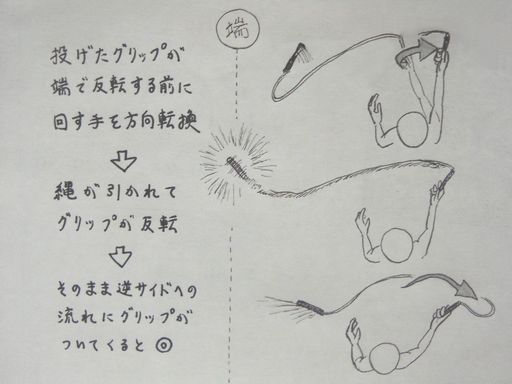 端
投げたグリップが
端で反転する前に
回す手を方向転換
縄が引かれて
グリップが反転
そのまま逆サイドへの
流れにグリップが
ついてくると◎